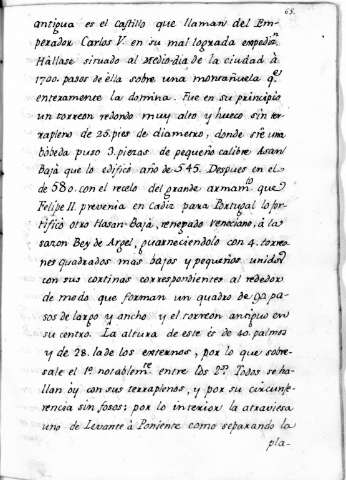 65.
antigua es el Castillo que llaman del Em-
perador Carlos V. en su mal lograda expedizn.
Hállase situado al Medio-dia de la ciudad à
1700. pasos de èlla sobre una montañuela qe.
enteramente la domina. Fue en su principio
un torreon redondo muy alto y hueco sin ter-
rapleno de 25. pies de diametro, donde sre. una
bóbeda puso 3. piezas de pequeño calibre Asan
Bajà que lo edificó año de 545. Despues en el
de 580. con el recelo del grande armamto. que
Felipe II. prevenia en Cadiz para Portugal lo for-
tificó otro Hasan-Bajà, renegado Veneciano, à la
sazon Bey de Argel, guarneciendolo con 4. torreo-
nes quadrados mas bajos y pequeños unidos
con sus cortinas correspondientes al rededor
de modo que forman un quadro de 90. pa-
sos de largo y ancho y el torreon antiguo en
su centro. La altura de este es de 40. palmos
y de 28. la de los externos, por lo que sobre-
sale el 1o. notablemte. entre los 2os. Todos se ha-
llan oy con sus terraplenos, y por su circunfe-
rencia sin fosos; por lo interior la atraviesa
uno de Levante à Poniente como separando la
pla-